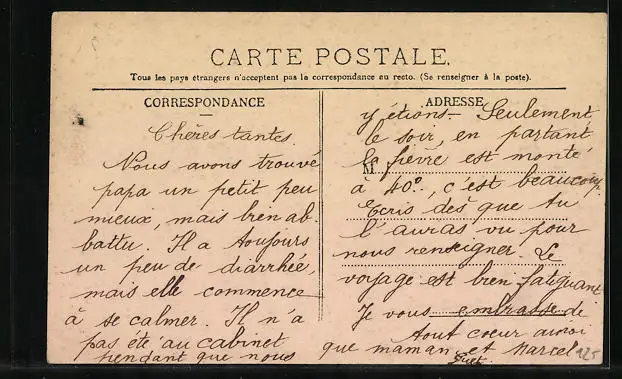 CARTE POSTALE.
Tous les pays étrangers n'acceptent pas la correspondance au recto. (Se renseigner à la poste).
CORRESPONDANCE
Chères tantes
Nous avons trouvé
papa un petit peu
mieux, mais bien ab-
battu. Il a toujours
un peu de diarrhée,
mais elle commence
à se calmer. Il n'a
pas été au cabinet
pendant que nous
ADRESSE
y étions— Seulement
le soir, en partant
M
la fièvre est monté
à 40°, c'est beaucoup.
Ecris dès que tu
l'auras vu pour
nous renseigner. Le
voyage est bien fatiguant
Je vous embrasse de
tout coeur ainsi
que maman et Marcel
125